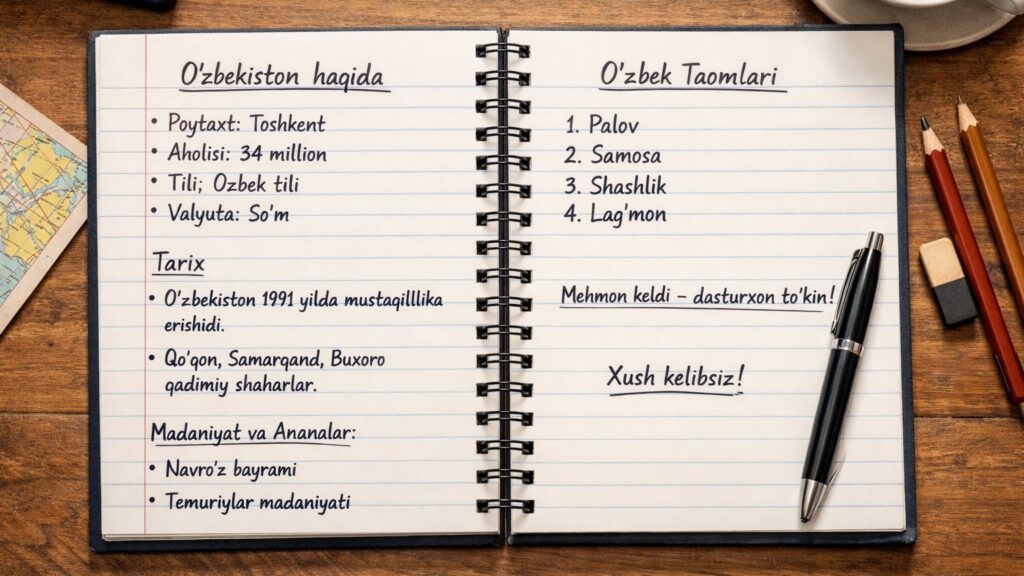 O'zbekiston haqida
• Poytaxt: Toshkent
• Aholisi: 34 million
• Tili; Ozbek tili
• Valyuta: So'm
Tarix
• O'zbekiston 1991 yilda mustaqilllika
erishidi.
• Qo'qon, Samarqand, Buxoro
qadimiy shaharlar.
Madaniyat va Ananalar:
• Navro'z bayrami
• Temuriylar madaniyati
O'zbek Taomlari
1. Palov
2. Samosa
3. Shashlik
4. Lag'mon
Mehmon keldi – dasturxon to'kin!
Xush kelibsiz!